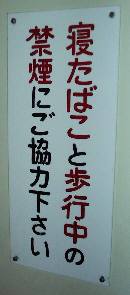 寝たばこと歩行中の
禁煙にご協力下さい